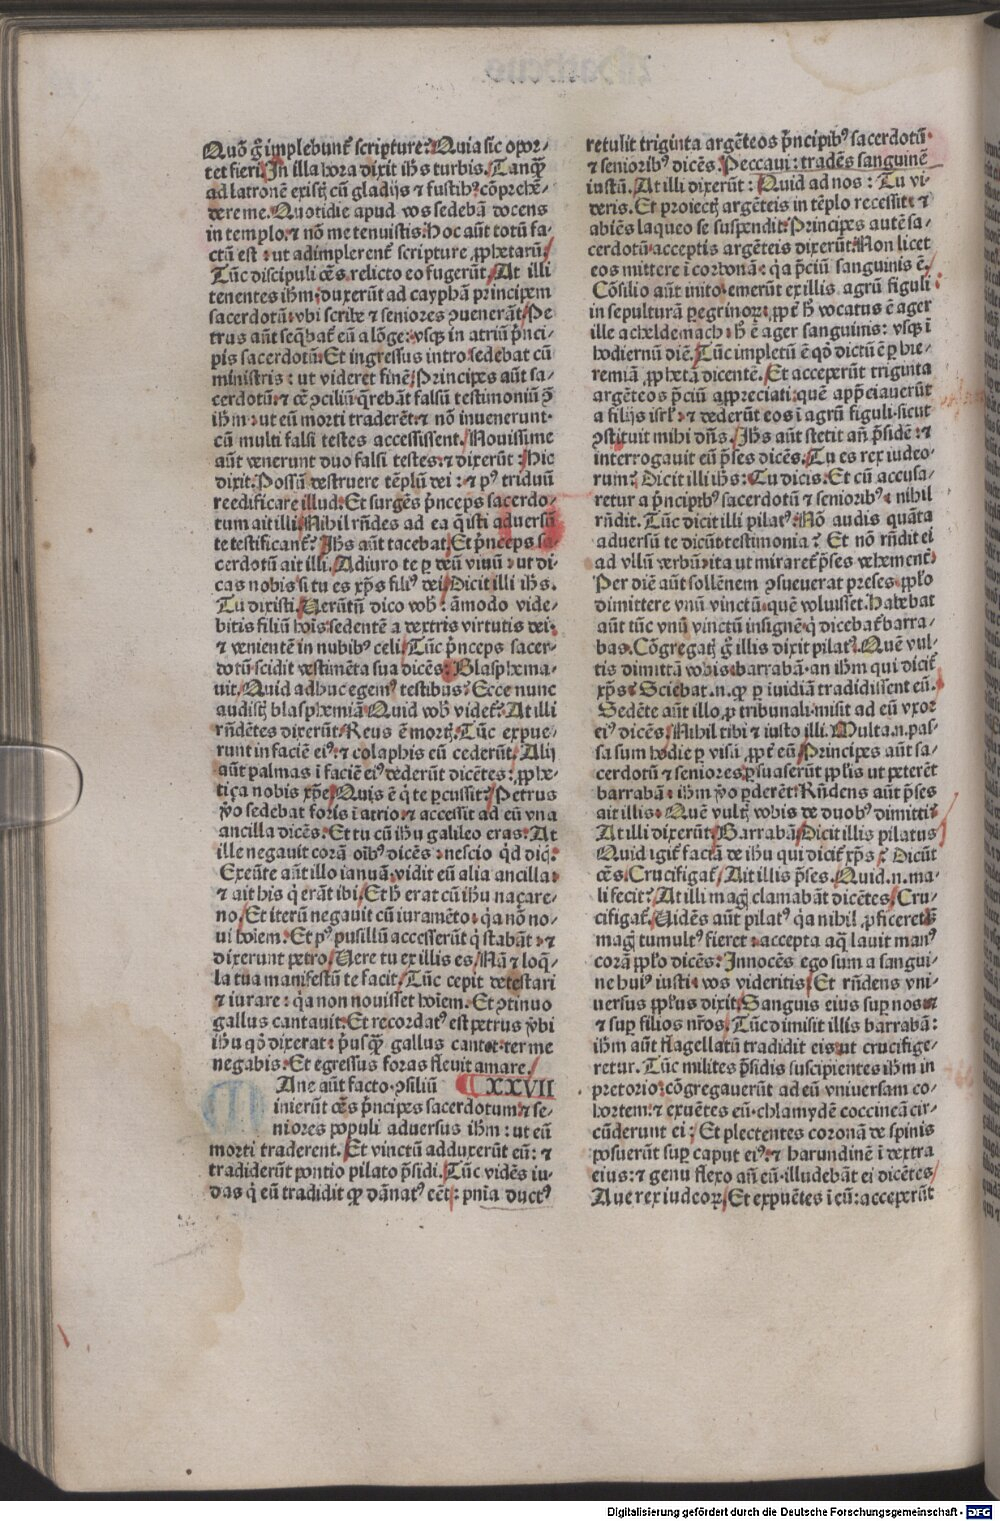 Quō g̃ implebunt᷑ scripture? Quia sic opor-
tet fieri. In illa hora dixit ih̄s turbis. Tanq̄ȝ
ad latronē existꝭ cū gladijs ⁊ fustibꝰ cōprehē-
dere me. Quotidie apud vos sedebā docens
in templo: ⁊ nō me tenuistis. Hoc aūt totū fa-
ctū est: ut adimplerent᷑ scripture ꝓphetarū.
Tūc discipuli oēs relicto eo fugerūt. At illi
tenentes ih̄m: duxerūt ad cayphā principem
sacerdotū: vbi scribe ⁊ seniores ꝯuenerāt. Pe
trus aūt seq̄bat᷑ eū a lōge: vsqȝ in atriū p̄nci-
pis sacerdotū. Et ingressus intro sedebat cū
ministris: ut videret finē. Principes aūt sa-
cerdotū ⁊ oē ꝯciliū q̄rebāt falsū testimoniū ꝯ̄
ih̄m: ut eū morti traderēt: ⁊ nō invenerunt:
cū multi falsi testes accessissent. Nouissime
aūt venerunt duo falsi testes: ⁊ dixerūt: Hic
dixit. Possū destruere tēplū dei: ⁊ pꝰ triduū
reedificare illud. Et surgēs p̄nceps sacerdo-
tum ait illi. Nihil rn̄des ad ea q̄ isti aduersū
te testificant᷑? Ih̄s aūt tacebat. Et p̄nceps sa-
cerdotū ait illi. Adiuro te ꝑ deū viuū: ut di-
cas nobis si tu es xp̄s filiꝰ dei. Dicit illi ih̄s.
Tu dixisti. Uerūtn̄ dico vob̄: āmodo vide-
bitis filiū hoīs sedentē a dextris virtutis dei:
⁊ venientē in nubibꝰ celi. Tūc p̄nceps sacer-
dotū scidit vestimēta sua dicēs: Blasphema-
uit. Quid adhuc egemꝰ testibus? Ecce nunc
audistꝭ blasphemiā Quid vob̄ videt᷑? At illi
rn̄dētes dixerūt. Reus ē mortꝭ. Tūc expue-
runt in faciē eiꝰ: ⁊ colaphis eū cederūt. Alij
aūt palmas ī faciē eiꝰ dederūt dicētes: ꝓphe-
tiça nobis xp̄e. Quis ē q̇ te ꝑcussit? Petrus
v̊o sedebat foris ī atrio: ⁊ accessit ad eū vna
ancilla dicēs. Et tu cū ih̄u galileo eras. At
ille negauit corā oībꝰ dicēs: nescio qd̄ dicꝭ.
Exeūte aūt illo ianuā: vidit eū alia ancilla:
⁊ ait his q̇ erāt ibi. Et h̄ erat cū ih̄u naçare-
no. Et iterū negauit cū iuramēto: qꝛ nō no-
ui hoīem. Et pꝰ pusillū accesserūt q̇ stabāt: ⁊
dixerunt petro. Uere tu ex illis es. Nā ⁊ loq̄-
la tua manifestū te facit. Tūc cepit detestari
⁊ iurare: qꝛ non nouisset hoīem. Et ꝯtinuo
gallus cantauit. Et recordatꝰ est petrus v̊bi
ih̄u qd̄ dixerat: p̄usq̄ȝ gallus cantet: ter me
negabis. Et egressus foras fleuit amare.
MAne aūt facto ꝯsiliū XXVII
inierūt oēs p̄ncipes sacerdotum ⁊ se-
niores populi aduersus ih̄m: ut eū
morti traderent. Et vinctū adduxerūt eū: ⁊
tradiderūt pontio pilato p̄sidi. Tūc vidēs iu-
das q̇ eū tradidit qꝙ dānatꝰ eēt: pn̄ia ductꝰ
retulit triginta argēteos p̄ncipibꝰ sacerdotū
⁊ senioribꝰ dicēs. Peccaui: tradēs sanguinē
iustū. At illi dixerūt: Quid ad nos: Tu vi-
deris. Et proiectꝭ argēteis in tēplo recessit: ⁊
abiēs laqueo se suspendit. Principes autē sa-
cerdotū acceptis argēteis dixerūt. Non licet
eos mittere ī corbonā: qꝛ p̄ciū sanguinis ē.
Cōsilio aūt inito emerūt ex illis agrū figuli
in sepulturā peregrinoꝝ: ꝓpt᷑ h̄ vocatus ē ager
ille acheldemach: h̄ ē ager sanguinis: vsqȝ ī
hodiernū diē. Tūc impletū ē qd̄ dictū ē ꝑ hie-
remiā ꝓphetā dicentē. Et acceperūt triginta
argēteos p̄ciū appreciati: quē app̄ciauerūt
a filijs isrl̄: ⁊ dederūt eos ī agrū figuli: sicut
ꝯstituit mihi dn̄s. Ih̄s aūt stetit an̄ p̄sidē: ⁊
interrogauit eū p̄ses dicēs. Tu es rex iudeo-
rum? Dicit illi ih̄s: Tu dicis. Et cū accusa-
retur a p̄ncipibꝰ sacerdotū ⁊ senioribꝰ: nihil
rn̄dit. Tūc dicit illi pilatꝰ. Nō audis quāta
aduersū te dicūt testimonia? Et nō rn̄dit ei
ad vllū verbū: ita ut miraret᷑ p̄ses vehement᷑.
Per diē aūt sollēnem ꝯsueuerat preses pp̄lo
dimittere vnū vinctū: quē voluissēt. Habebat
aūt tūc vnū vinctū insignē: q̇ dicebat᷑ barra-
bas. Cōgregatꝭ g̃ illis dixit pilatꝰ. Quē vul-
tis dimittā vobis: barrabā: an ih̄m qui dicit᷑
xp̄s? Sciebat .n. qꝙ ꝑ īuidiā tradidissent eū.
Sedēte aūt illo ꝓ tribunali: misit ad eū vxor
eiꝰ dicēs. Nihil tibi ⁊ iusto illi. Multa .n. pas-
sa sum hodie ꝑ visū ꝓpt᷑ eū. Principes aūt sa-
cerdotū ⁊ seniores ꝑsuaserūt pp̄lis ut peterēt
barrabā: ih̄m v̊o ꝑderēt. Rn̄dens aūt p̄ses
ait illis. Quē vultꝭ vobis de duobꝰ dimitti?
At illi dixerūt. Barrabā. Dicit illis pilatus
Quid igit᷑ faciā de ih̄u qui dicit᷑ xp̄s? Dicūt
oēs. Crucifigat᷑. Ait illis p̄ses. Quid .n. ma-
li fecit? At illi magꝭ clamabāt dicētes. Cru-
cifigat᷑. Uidēs aūt pilatꝰ qꝛ nihil ꝓficeret sȝ
magꝭ tumultꝰ fieret: accepta aq̄ lauit manꝰ
corā pp̄lo dicēs: Innocēs ego sum a sangui-
ne huiꝰ iusti: vos videritis. Et rn̄dens vni-
uersus pp̄lus dixit. Sanguis eius suꝑ nos: ⁊
⁊ suꝑ filios nr̄os. Tūc dimisit illis barrabā:
ih̄m aūt flagellatū tradidit eis ut crucifige-
retur. Tūc milites p̄sidis suscipientes ih̄m in
pretorio: cōgregauerūt ad eū vniuersam co-
hortem: ⁊ exuētes eū: chlamydē coccineā cir-
cūderunt ei: Et plectentes coronā de spinis
posuerūt suꝑ caput eiꝰ: ⁊ harundinē ī dextra
eius: ⁊ genu flexo an̄ eū: illudebāt ei dicētes
Aue rex iudeoꝝ. Et expuētes ī eū: acceperūt
Digitalisierung gefördert durch die Deutsche Forschungsgemeinschaft - DFG